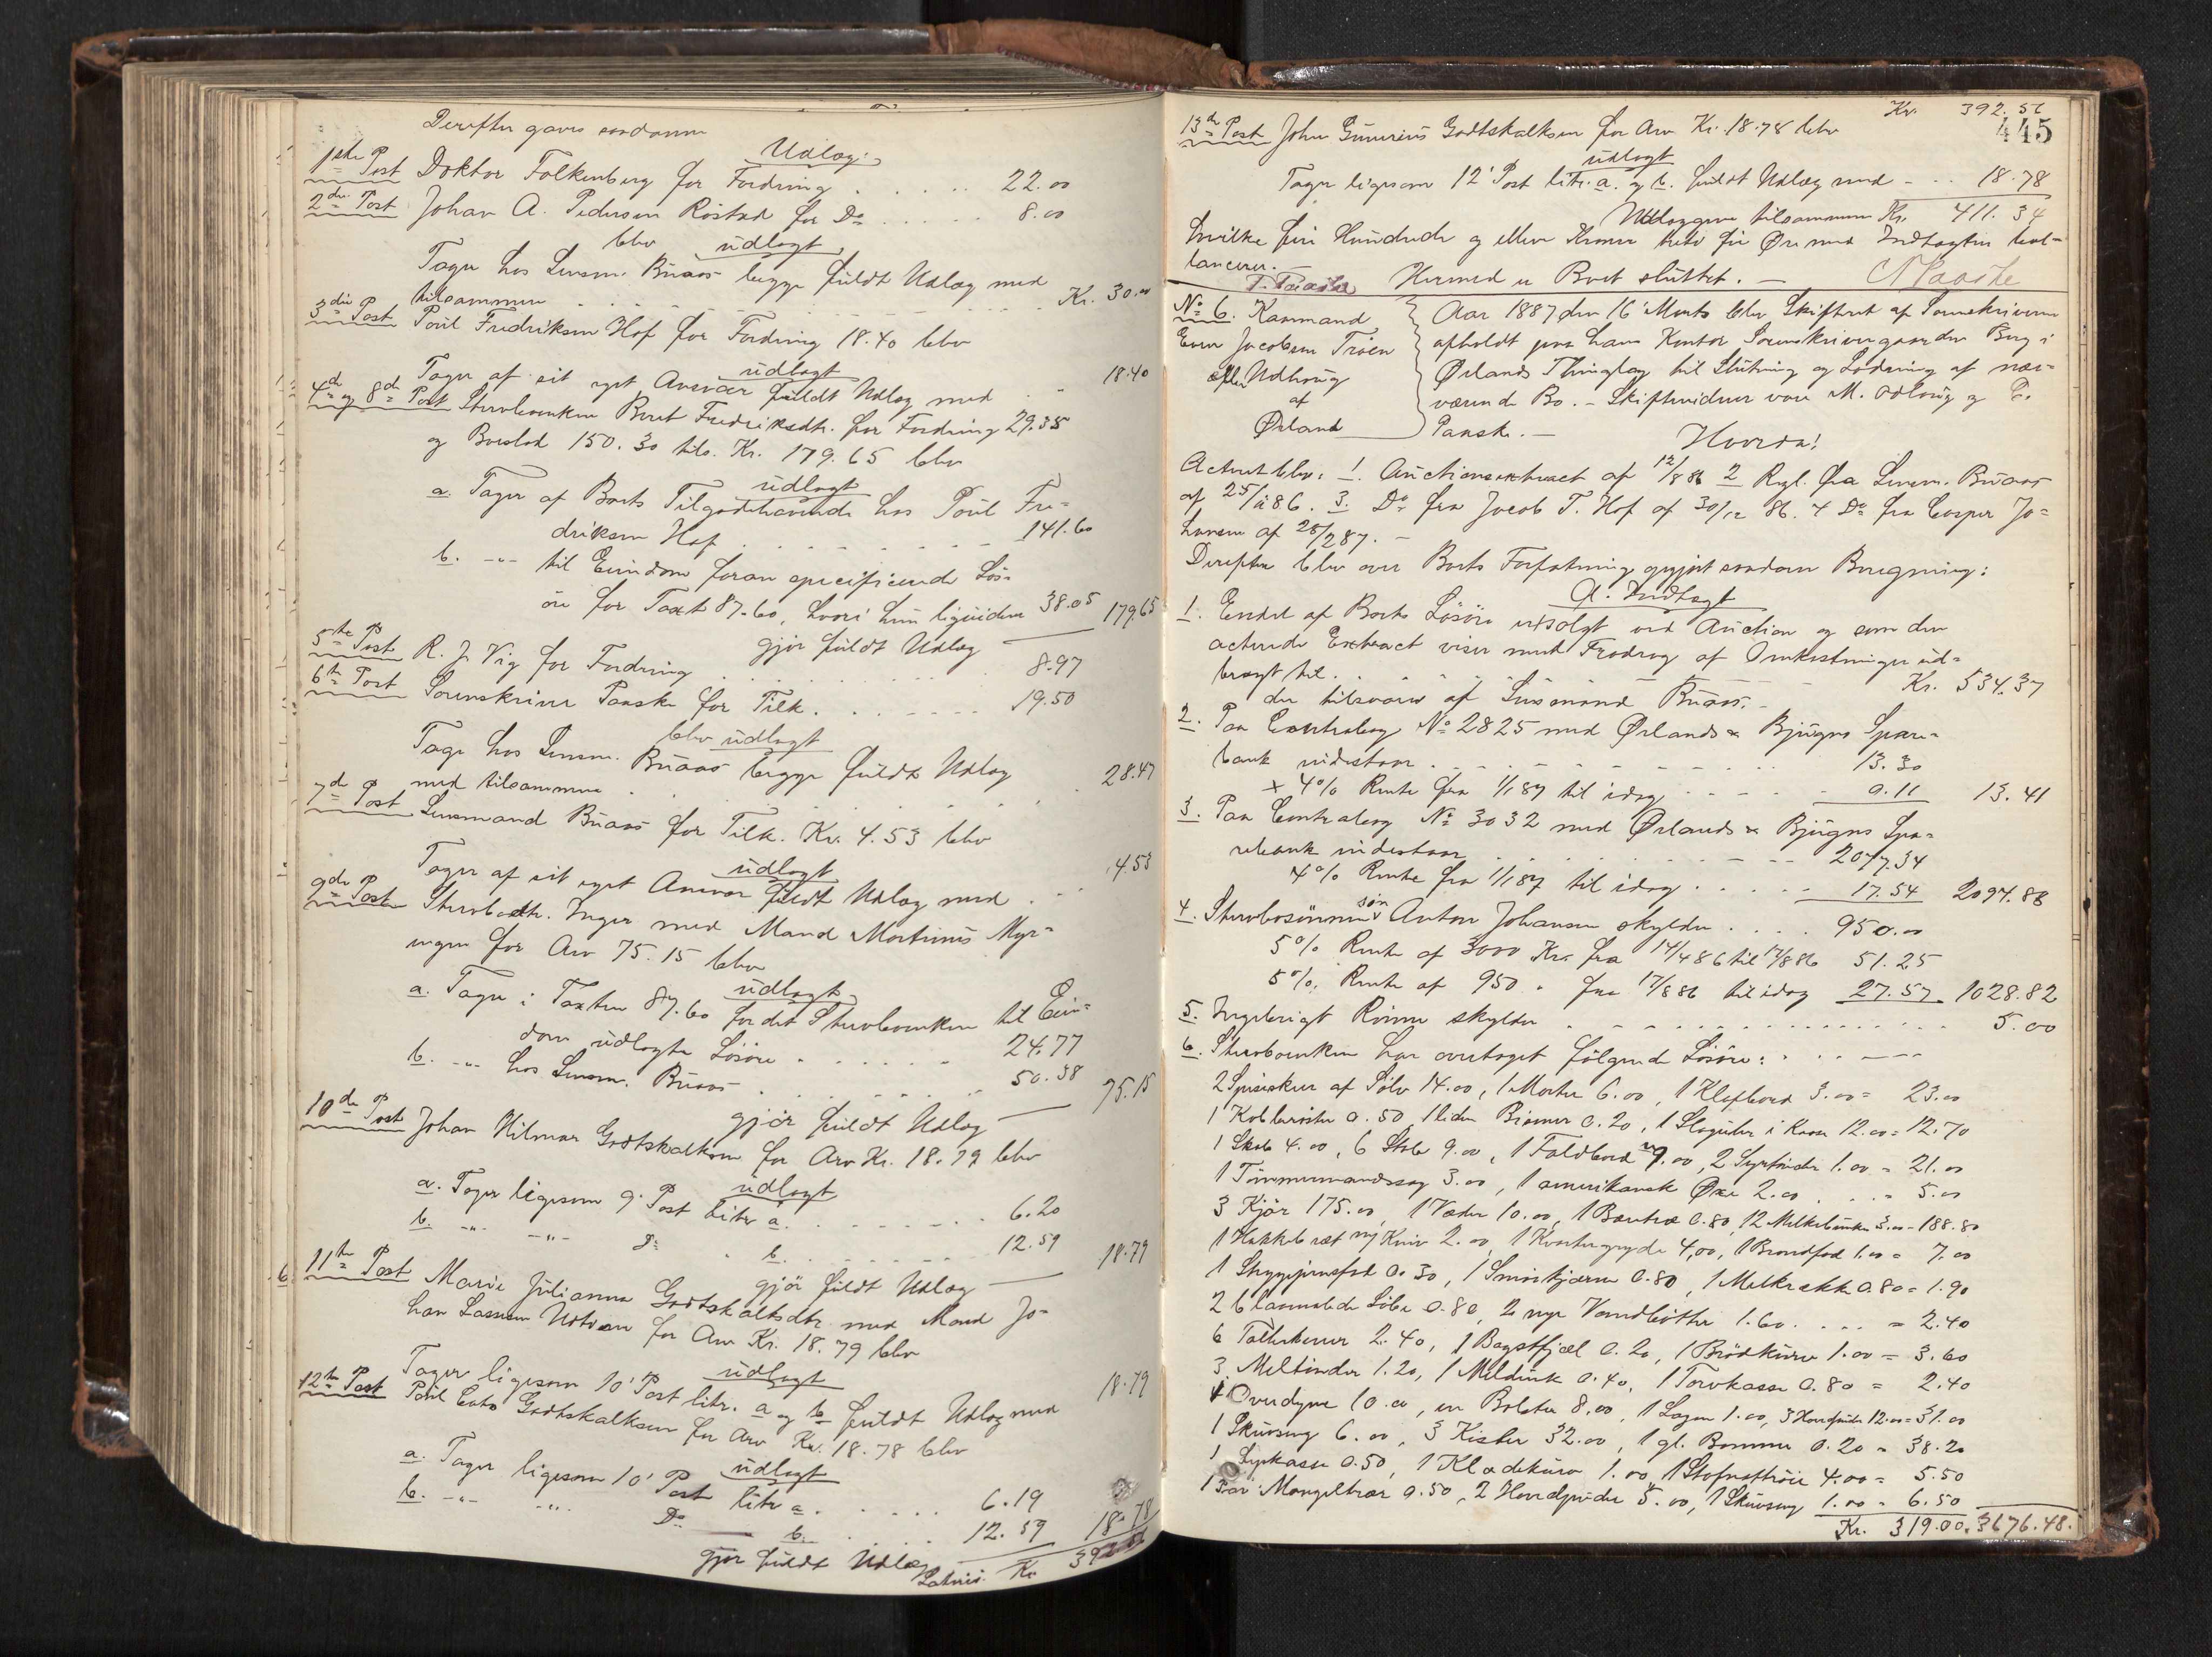 Derefter gaves saadanne
Udlæg:
1ste Post Doktor Falkenberg for Fordring . . . . . 22.00
2den Post Johan A. Pedersen Röstad for Do . . . . . 8.00
blev udlagt
Tager hos Lensm. Buaas begge fuldt Udlæg med
tilsammen . . . . . . . . Kr. 30.00
3die Post Poul Fredriksen Hof for Fordring 18.40 blev
udlagt
Tager af sit eget Ansvar fuldt Udlæg med . " 18.40
4de og 8de Post Stervboenken Beret Fredriksdtr. for Fordring 29.35
og Boeslod 150.30 tils. Kr. 179.65 blev
udlagt
a. Tager af Boets Tilgodehavende hos Poul Fre-
driksen Hof . . . . . . . . 141.60
b. -"- til Eiendom foran specificerede Lös-
öre for Taxt 87.60, hvori hun liqviderer 38.05 179.65
gjör fuldt Udlæg
5te Post R. J. Vig for Fordring . . . . . . 8.97
6te Post Sorenskriver Paaske for Tilk. . . . . . . 19.50
blev udlagt
Tager hos Lensm. Buaas begge fuldt Udlæg
med tilsammen . . . . . . . . 28.47
7de Post Lensmand Buaas for Tilk. Kr. 4.53 blev
udlagt
Tager af sit eget Ansvar fuldt Udlæg med . . 4.53
9de Post Stervbodtr. Inger med Mand Martinus Myr-
engen for Arv 75.15 blev
udlagt
a. Tager i Taxten 87.60 for det Stervboenken til Eien-
dom udlagte Lösöre . . . . . . 24.77
b. -"- hos Lensm. Buaas . . . . . . 50.38 75.15
gjör fuldt Udlæg
10de Post Johan Hilmar Godtskalksen for Arv Kr. 18.79 blev
udlagt
a. Tager ligesom 9' Post litr a. . . . . . . . 6.20
b. -"- -"- Do b. . . . . . . 12.59 18.79
gjör fuldt Udlæg
11te Post Marie Julianna Godtskalksdtr. med Mand Jo-
han Lassesen Udtian for Arv Kr. 18.79 blev
udlagt
Tager ligesom 10' Post litr. a og b fuldt Udlæg med 18.79
12te Post Poul Eato Godtskalksen for Arv Kr. 18.78 blev
udlagt
a. Tager ligesom 10' Post litr a. . . . . . 6.19
b. -"- -"- Do b. . . . . 12.59 18.78
gjör fuldt Udlæg
Latus Kr. 392.56
Kr. 392.56
445
13de Post John Gunerius Godtskalksen for Arv Kr. 18.78 blev
udlagt
Tager ligesom 12' Post litr. a. og b. fuldt Udlæg med - . . 18.78
Udlæggene tilsammen Kr. 411.34
hvilke fire Hundrede og elleve Kroner treti fir Öre med Indtægten bal-
lancerer.
Hermed er Boet sluttet. —
P. Paaske
No 6. Kaarmand
Even Jacobsen Tröen
eller Udhaug
af
Ørland
Aar 1887 den 16' Marts blev Skifteret af Sorenskriveren
afholdt paa hans Kontor Sorenskrivergaarden Berg i
Ørlands Thinglag til Slutning og Lodning af nær-
værende Bo. - Skiftevidner vare M. Odlaug og P.
Paaske. —
Hvorda!
Acteret blev: 1. Auctionsextract af 12/8 86 2 Regl. fra Lensm. Buaas
af 25/2 86. 3. Do fra Jacob T. Hof af 30/12 86. 4 Do fra Casper Jo-
hansen af 28/2 87. -
Derefter blev over Boets Forfatning opgjort saadan Beregning:
A. Indtægt
1. Endel af Boets Lösöre er solgt ved Auction og som den
acterede Extract viser med Fradrag af Omkostninger ud-
bragt til. . . . . . . . Kr. 534.37
der tilsvares af Lensmand Buaas. -
2. Paa Contrabog No 2825 med Ørlands & Bjugns Spare-
bank indestaar . . . . . . . 13.30
+ 4% Rente fra 1/1 87 til idag . . . . - 0.11 13.41
3. Paa Contrabog No 3032 med Ørlands & Bjugns Spa-
rebank indestaar . . . . . . 2077.34
4% Rente fra 1/1 87 til idag . . . . . 17.54 2094.88
4. Stervbosönnens sön Anton Johansen skylder . . . . 950.00
5% Rente af 3000 Kr. fra 14/4 86 til 17/8 86 51.25
5% Rente af 950 " fra 17/8 86 til idag 27.57 1028.82
5. Ingebrigt Rönne skylder . . . . . . . . . . 5.00
6. Stervboenken har overtaget fölgende Lösöre: . . . . .
2 Spiseskeer af Sölv 14.00, 1 Morter 6.00, 1 Klapbord 3.00 = 23.00
1 Kobberrister 0.50, 1 liden Bismer 0.20, 1 Slaguhr i Kasse 12.00 = 12.70
1 Skab 4.00, 6 Stole 9.00, 1 Foldbord 7.00, 2 Syrtinder 1.00 = 21.00
1 Tömmermandssag 3.00, 1 amerikansk Øxe 2.00 . . . = 5.00
3 Kjör 175.00, 1 Væder 10.00, 1 Bæretræ 0.80, 12 Melkebunker 3.00 = 188.80
1 Hakkebræt m Kniv 2.00, 1 Kvartergryde 4.00, 1 Brændfad 1.00 = 7.00
1 Strygejernsfod 0.30, 1 Smörkjærne 0.80, 1 Melkerække 0.80 = 1.90
2 blaamalede Löber 0.80, 2 nye Vandbötter 1.60. . . . = 2.40
6 Tallerkener 2.40, 1 Bagstfjæl 0.20, 1 Brödkurv 1.00 = 3.60
3 Meltinder 1.20, 1 Meldunk 0.40, 1 Torvkasse 0.80 = 2.40
1 Overdyne 10.00, en Bolster 8.00, 1 Lagen 1.00, 3 Hovedputer 12.00 = 31.00
1 Skuvseng 6.00, 3 Kister 32.00, 1 gl. Bomme 0.20 = 38.20
1 Syskasse 0.50, 1 Klædekurv 1.00, 1 Stofnattröie 4.00 = 5.50
1 Par Mangeltrær 0.50, 2 Hovedputer 5.00, 1 Skuvseng 1.00 = 6.50
Kr. 319.00. 3676.48.